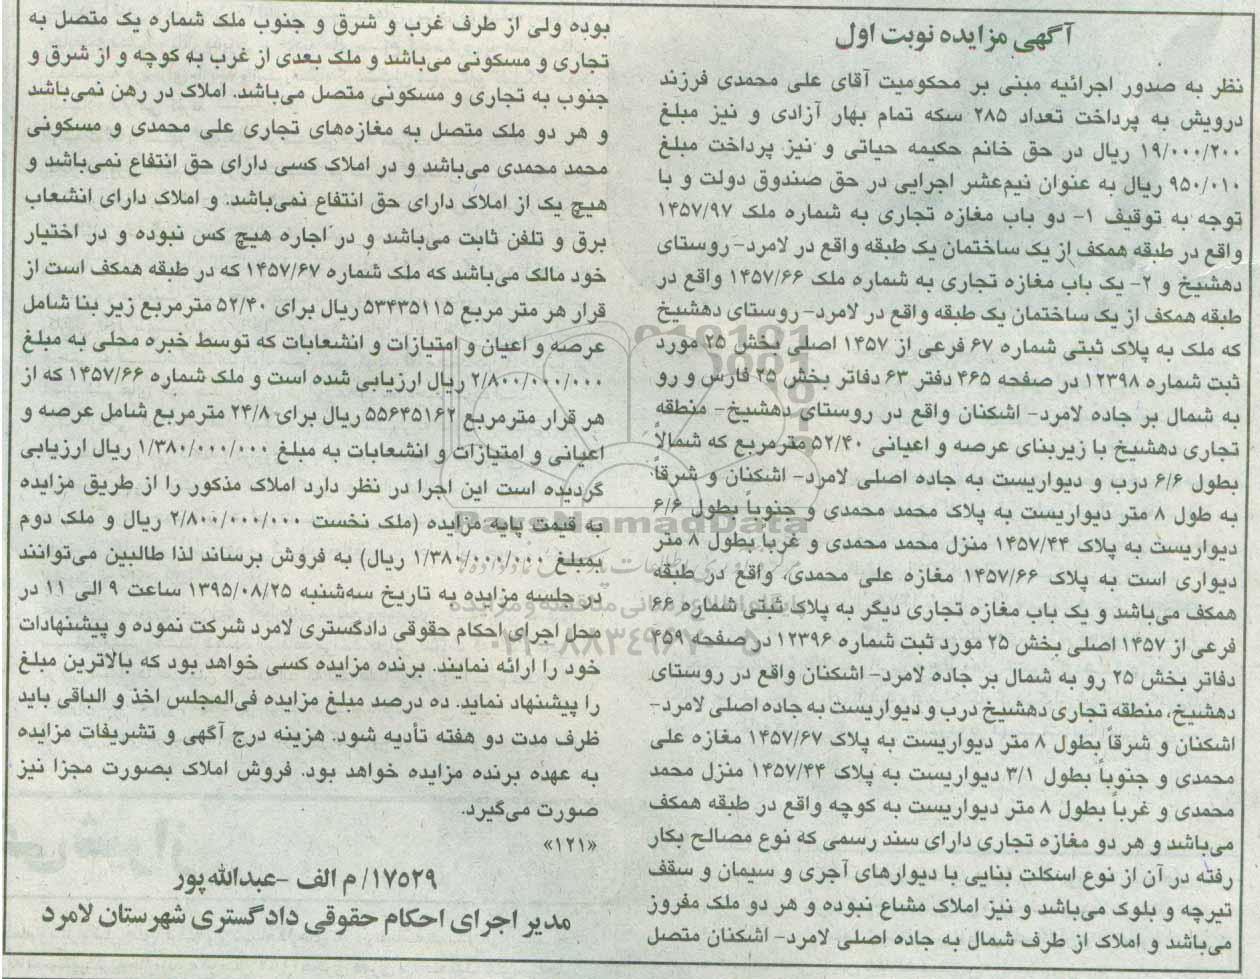 آگهی مزایده نوبت اول
نظر به صدور اجرائیه مبنی بر محکومیت آقای علی محمدی فرزند
درویش به پرداخت تعداد ۲۸۵ سکه تمام بهار آزادی و نیز مبلغ
۱۹/۰۰۰/۲۰۰ ریال در حق خانم حکیمه حیاتی و نیز پرداخت مبلغ
۹۵۰/۰۱۰ ریال به عنوان نیم‌عشر اجرایی در حق صندوق دولت و با
توجه به توقیف ۱- دو باب مغازه تجاری به شماره ملک ۱۴۵۷/۹۷
واقع در طبقه همکف از یک ساختمان یک طبقه واقع در لامرد- روستای
دهشیخ و ۲- یک باب مغازه تجاری به شماره ملک ۱۴۵۷/۶۶ واقع در
طبقه همکف از یک ساختمان یک طبقه واقع در لامرد- روستای دهشیخ
که ملک به پلاک ثبتی شماره ۶۷ فرعی از ۱۴۵۷ اصلی بخش ۲۵ مورد
ثبت شماره ۱۲۳۹۸ در صفحه ۴۶۵ دفتر ۶۳ دفاتر بخش ۲۵ فارس و رو
به شمال بر جاده لامرد- اشکنان واقع در روستای دهشیخ- منطقه
تجاری دهشیخ با زیربنای عرصه و اعیانی ۵۲/۴۰ مترمربع که شمالاً
بطول ۶/۶ درب و دیواریست به جاده اصلی لامرد- اشکنان و شرقاً
به طول ۸ متر دیواریست به پلاک محمد محمدی و جنوباً بطول ۶/۶
دیواریست به پلاک ۱۴۵۷/۴۴ منزل محمد محمدی و غرباً بطول ۸ متر
دیواری است به پلاک ۱۴۵۷/۶۶ مغازه علی محمدی، واقع در طبقه
همکف می‌باشد و یک باب مغازه تجاری دیگر به پلاک ثبتی شماره ۶۶
فرعی از ۱۴۵۷ اصلی بخش ۲۵ مورد ثبت شماره ۱۲۳۹۶ در صفحه ۴۵۹
دفاتر بخش ۲۵ رو به شمال بر جاده لامرد- اشکنان واقع در روستای
دهشیخ، منطقه تجاری دهشیخ درب و دیواریست به جاده اصلی لامرد-
اشکنان و شرقاً بطول ۸ متر دیواریست به پلاک ۱۴۵۷/۶۷ مغازه علی
محمدی و جنوباً بطول ۳/۱ دیواریست به پلاک ۱۴۵۷/۴۴ منزل محمد
محمدی و غرباً بطول ۸ متر دیواریست به کوچه واقع در طبقه همکف
می‌باشد و هر دو مغازه تجاری دارای سند رسمی که نوع مصالح بکار
رفته در آن از نوع اسکلت بنایی با دیوارهای آجری و سیمان و سقف
تیرچه و بلوک می‌باشد و نیز املاک مشاع نبوده و هر دو ملک مفروز
می‌باشد و املاک از طرف شمال به جاده اصلی لامرد- اشکنان متصل
بوده ولی از طرف غرب و شرق و جنوب ملک شماره یک متصل به
تجاری و مسکونی می‌باشد و ملک بعدی از غرب به کوچه و از شرق و
جنوب به تجاری و مسکونی متصل می‌باشد. املاک در رهن نمی‌باشد
و هر دو ملک متصل به مغازه‌های تجاری علی محمدی و مسکونی
محمد محمدی می‌باشد و در املاک کسی دارای حق انتفاع نمی‌باشد و
هیچ یک از املاک دارای حق انتفاع نمی‌باشد. و املاک دارای انشعاب
برق و تلفن ثابت می‌باشد و در اجاره هیچ کس نبوده و در اختیار
خود مالک می‌باشد که ملک شماره ۱۴۵۷/۶۷ که در طبقه همکف است از
قرار هر متر مربع ۵۳۴۳۵۱۱۵ ریال برای ۵۲/۴۰ مترمربع زیر بنا شامل
عرصه و اعیان و امتیازات و انشعابات که توسط خبره محلی به مبلغ
۲/۸۰۰/۰۰۰/۰۰۰ ریال ارزیابی شده است و ملک شماره ۱۴۵۷/۶۶ که از
هر قرار مترمربع ۵۵۶۴۵۱۶۲ ریال برای ۲۴/۸ مترمربع شامل عرصه و
اعیانی و امتیازات و انشعابات به مبلغ ۱/۳۸۰/۰۰۰/۰۰۰ ریال ارزیابی
گردیده است این اجرا در نظر دارد املاک مذکور را از طریق مزایده
به قیمت پایه مزایده (ملک نخست ۲/۸۰۰/۰۰۰/۰۰۰ ریال و ملک دوم
بمبلغ ۱/۳۸۰/۰۰۰/۰۰۰ ریال) به فروش برساند لذا طالبین می‌توانند
در جلسه مزایده به تاریخ سه‌شنبه ۱۳۹۵/۰۸/۲۵ ساعت ۹ الی ۱۱ در
محل اجرای احکام حقوقی دادگستری لامرد شرکت نموده و پیشنهادات
خود را ارائه نمایند. برنده مزایده کسی خواهد بود که بالاترین مبلغ
را پیشنهاد نماید. ده درصد مبلغ مزایده فی‌المجلس اخذ و الباقی باید
ظرف مدت دو هفته تأدیه شود. هزینه درج آگهی و تشریفات مزایده
به عهده برنده مزایده خواهد بود. فروش املاک بصورت مجزا نیز
صورت می‌گیرد.
«۱۲۱»
۱۷۵۲۹/ م الف -عبدالله‌پور
مدیر اجرای احکام حقوقی دادگستری شهرستان لامرد
ParsNamadData
۰۲۱-۸۸۳۴۹۶۷۰-۵